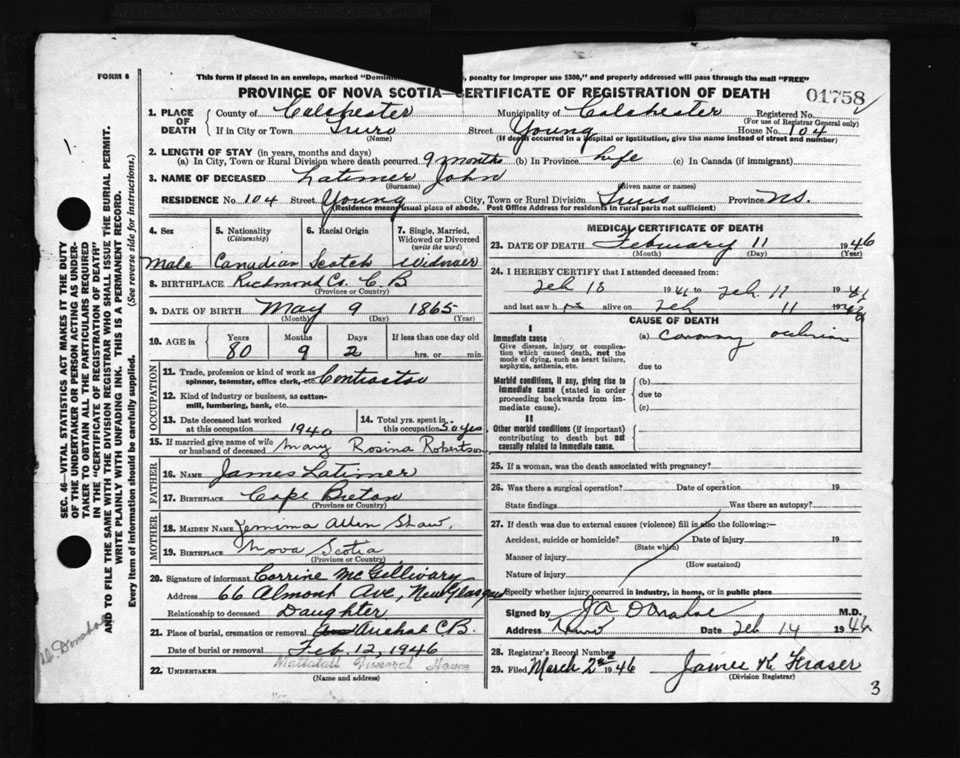 FORM 6
This form if placed in an envelope, marked "Domin penalty for improper use $300," and properly addressed will pass through the mail "FREE"
PROVINCE OF NOVA SCOTIA—CERTIFICATE OF REGISTRATION OF DEATH
01758
1. PLACE OF DEATH
County of Colchester Municipality of Colchester Registered No.
(For use of Registrar General only)
If in City or Town Truro Street Young House No. 104
(Name) (If death occurred in a hospital or institution, give the name instead of street and number)
2. LENGTH OF STAY (in years, months and days)
(a) In City, Town or Rural Division where death occurred 9 months (b) In Province Life (c) In Canada (if immigrant)
3. NAME OF DECEASED Latimer John
(Surname) (Given name or names)
RESIDENCE No. 104 Street Young City, Town or Rural Division Truro Province N.S.
(Residence means usual place of abode. Post Office Address for residents in rural parts not sufficient)
4. Sex 5. Nationality (Citizenship) 6. Racial Origin 7. Single, Married, Widowed or Divorced (write the word)
Male Canadian Scotch Widower
8. BIRTHPLACE Richmond Co. C.B
(Province or Country)
9. DATE OF BIRTH May 9 1865
(Month) (Day) (Year)
10. AGE in Years Months Days If less than one day old
80 9 2 hrs. or min.
OCCUPATION
11. Trade, profession or kind of work as spinner, teamster, office clerk, etc. Contractor
12. Kind of industry or business, as cotton-mill, lumbering, bank, etc.
13. Date deceased last worked at this occupation 1940
14. Total yrs. spent in this occupation 50 yrs.
15. If married give name of wife or husband of deceased Mary Rosina Robertson
FATHER
16. NAME James Latimer
17. BIRTHPLACE Cape Breton
(Province or Country)
MOTHER
18. MAIDEN NAME Jemima Allen Shaw.
19. BIRTHPLACE Nova Scotia
(Province or Country)
20. Signature of informant Corrine McGillivary
Address 66 Almont Ave, New Glasgow
Relationship to deceased Daughter
21. Place of burial, cremation or removal C.B.
Date of burial or removal Feb. 12, 1946
22. UNDERTAKER Mattatall Funeral Home
(Name and address)
MEDICAL CERTIFICATE OF DEATH
23. DATE OF DEATH February 11 1946
(Month) (Day) (Year)
24. I HEREBY CERTIFY that I attended deceased from:
Feb 1946 to Feb. 11 1946
and last saw h alive on Feb 11 1946
CAUSE OF DEATH
I
Immediate cause
Give disease, injury or complication which caused death, not the mode of dying, such as heart failure, asphyxia, asthenia, etc.
(a) coronary occlusion
due to
Morbid conditions, if any, giving rise to immediate cause (stated in order proceeding backwards from immediate cause).
(b)
due to
(c)
II
Other morbid conditions (if important) contributing to death but not causally related to immediate cause.
25. If a woman, was the death associated with pregnancy?
26. Was there a surgical operation? Date of operation 19
State findings Was there an autopsy?
27. If death was due to external causes (violence) fill in also the following:-
Accident, suicide or homicide? Date of injury 19
(State which)
Manner of injury
(How sustained)
Nature of injury
Specify whether injury occurred in industry, in home, or in public place
Signed by J A Donahoe M.D.
Address Truro Date Feb 14 1946
28. Registrar's Record Number
29. Filed March 2nd 1946 James K Fraser
(Division Registrar)
3
SEC. 46—VITAL STATISTICS ACT MAKES IT THE DUTY
OF THE UNDERTAKER OR PERSON ACTING AS UNDER-
TAKER TO OBTAIN ALL THE PARTICULARS REQUIRED
IN THE "CERTIFICATE OF REGISTRATION OF DEATH"
AND TO FILE THE SAME WITH THE DIVISION REGISTRAR WHO SHALL ISSUE THE BURIAL PERMIT.
WRITE PLAINLY WITH UNFADING INK. THIS IS A PERMANENT RECORD.
Every item of information should be carefully supplied. (See reverse side for instructions.)